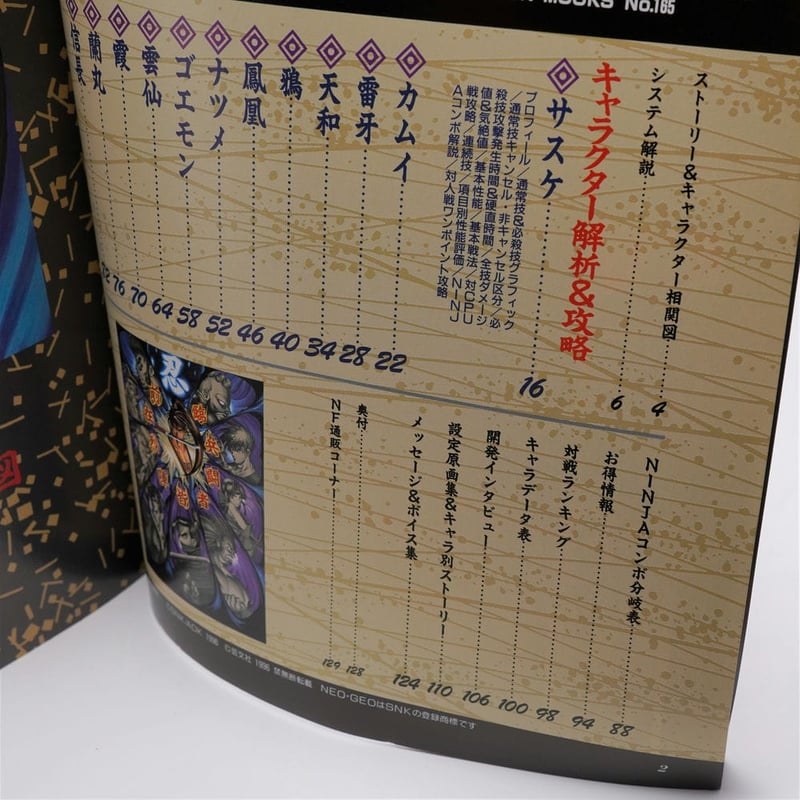 MOOKS No.165
ストーリー&キャラクター相関図 4
システム解説 6
キャラクター解析&攻略
サスケ 16
プロフィール/通常技&必殺技グラフィック
/通常技キャンセル・非キャンセル区分/必
殺技攻撃発生時間&硬直時間/全技ダメージ
値&気絶値/基本性能/基本戦法/対CPU
戦攻略/連続技/項目別性能評価/NINJ
Aコンボ解説/対人戦ワンポイント攻略
カムイ 22
雷牙 28
天和 34
鴉 40
鳳凰 46
ナツメ 52
ゴエモン 58
雲仙 64
霞 70
蘭丸 76
信長
NINJAコンボ分岐表 88
お得情報 94
対戦ランキング 98
キャラデータ表 100
開発インタビュー 106
設定原画集&キャラ別ストーリー 110
メッセージ&ボイス集 124
奥付 128
NF通販コーナー 129
忍
臨兵闘者
皆
在前
1996 ©芸文社 1996 禁無断転載 NEO・GEOはSNKの登録商標です
2